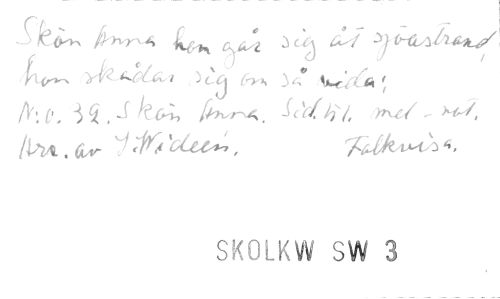 Skön Anna hon går sig åt sjöastrand,
hon skådar sig om så vida;
N:o. 32. Skön Anna. Sid. 41. mel-not.
Arr. av I. Wideén. Folkvisa.
SKOLKW SW 3